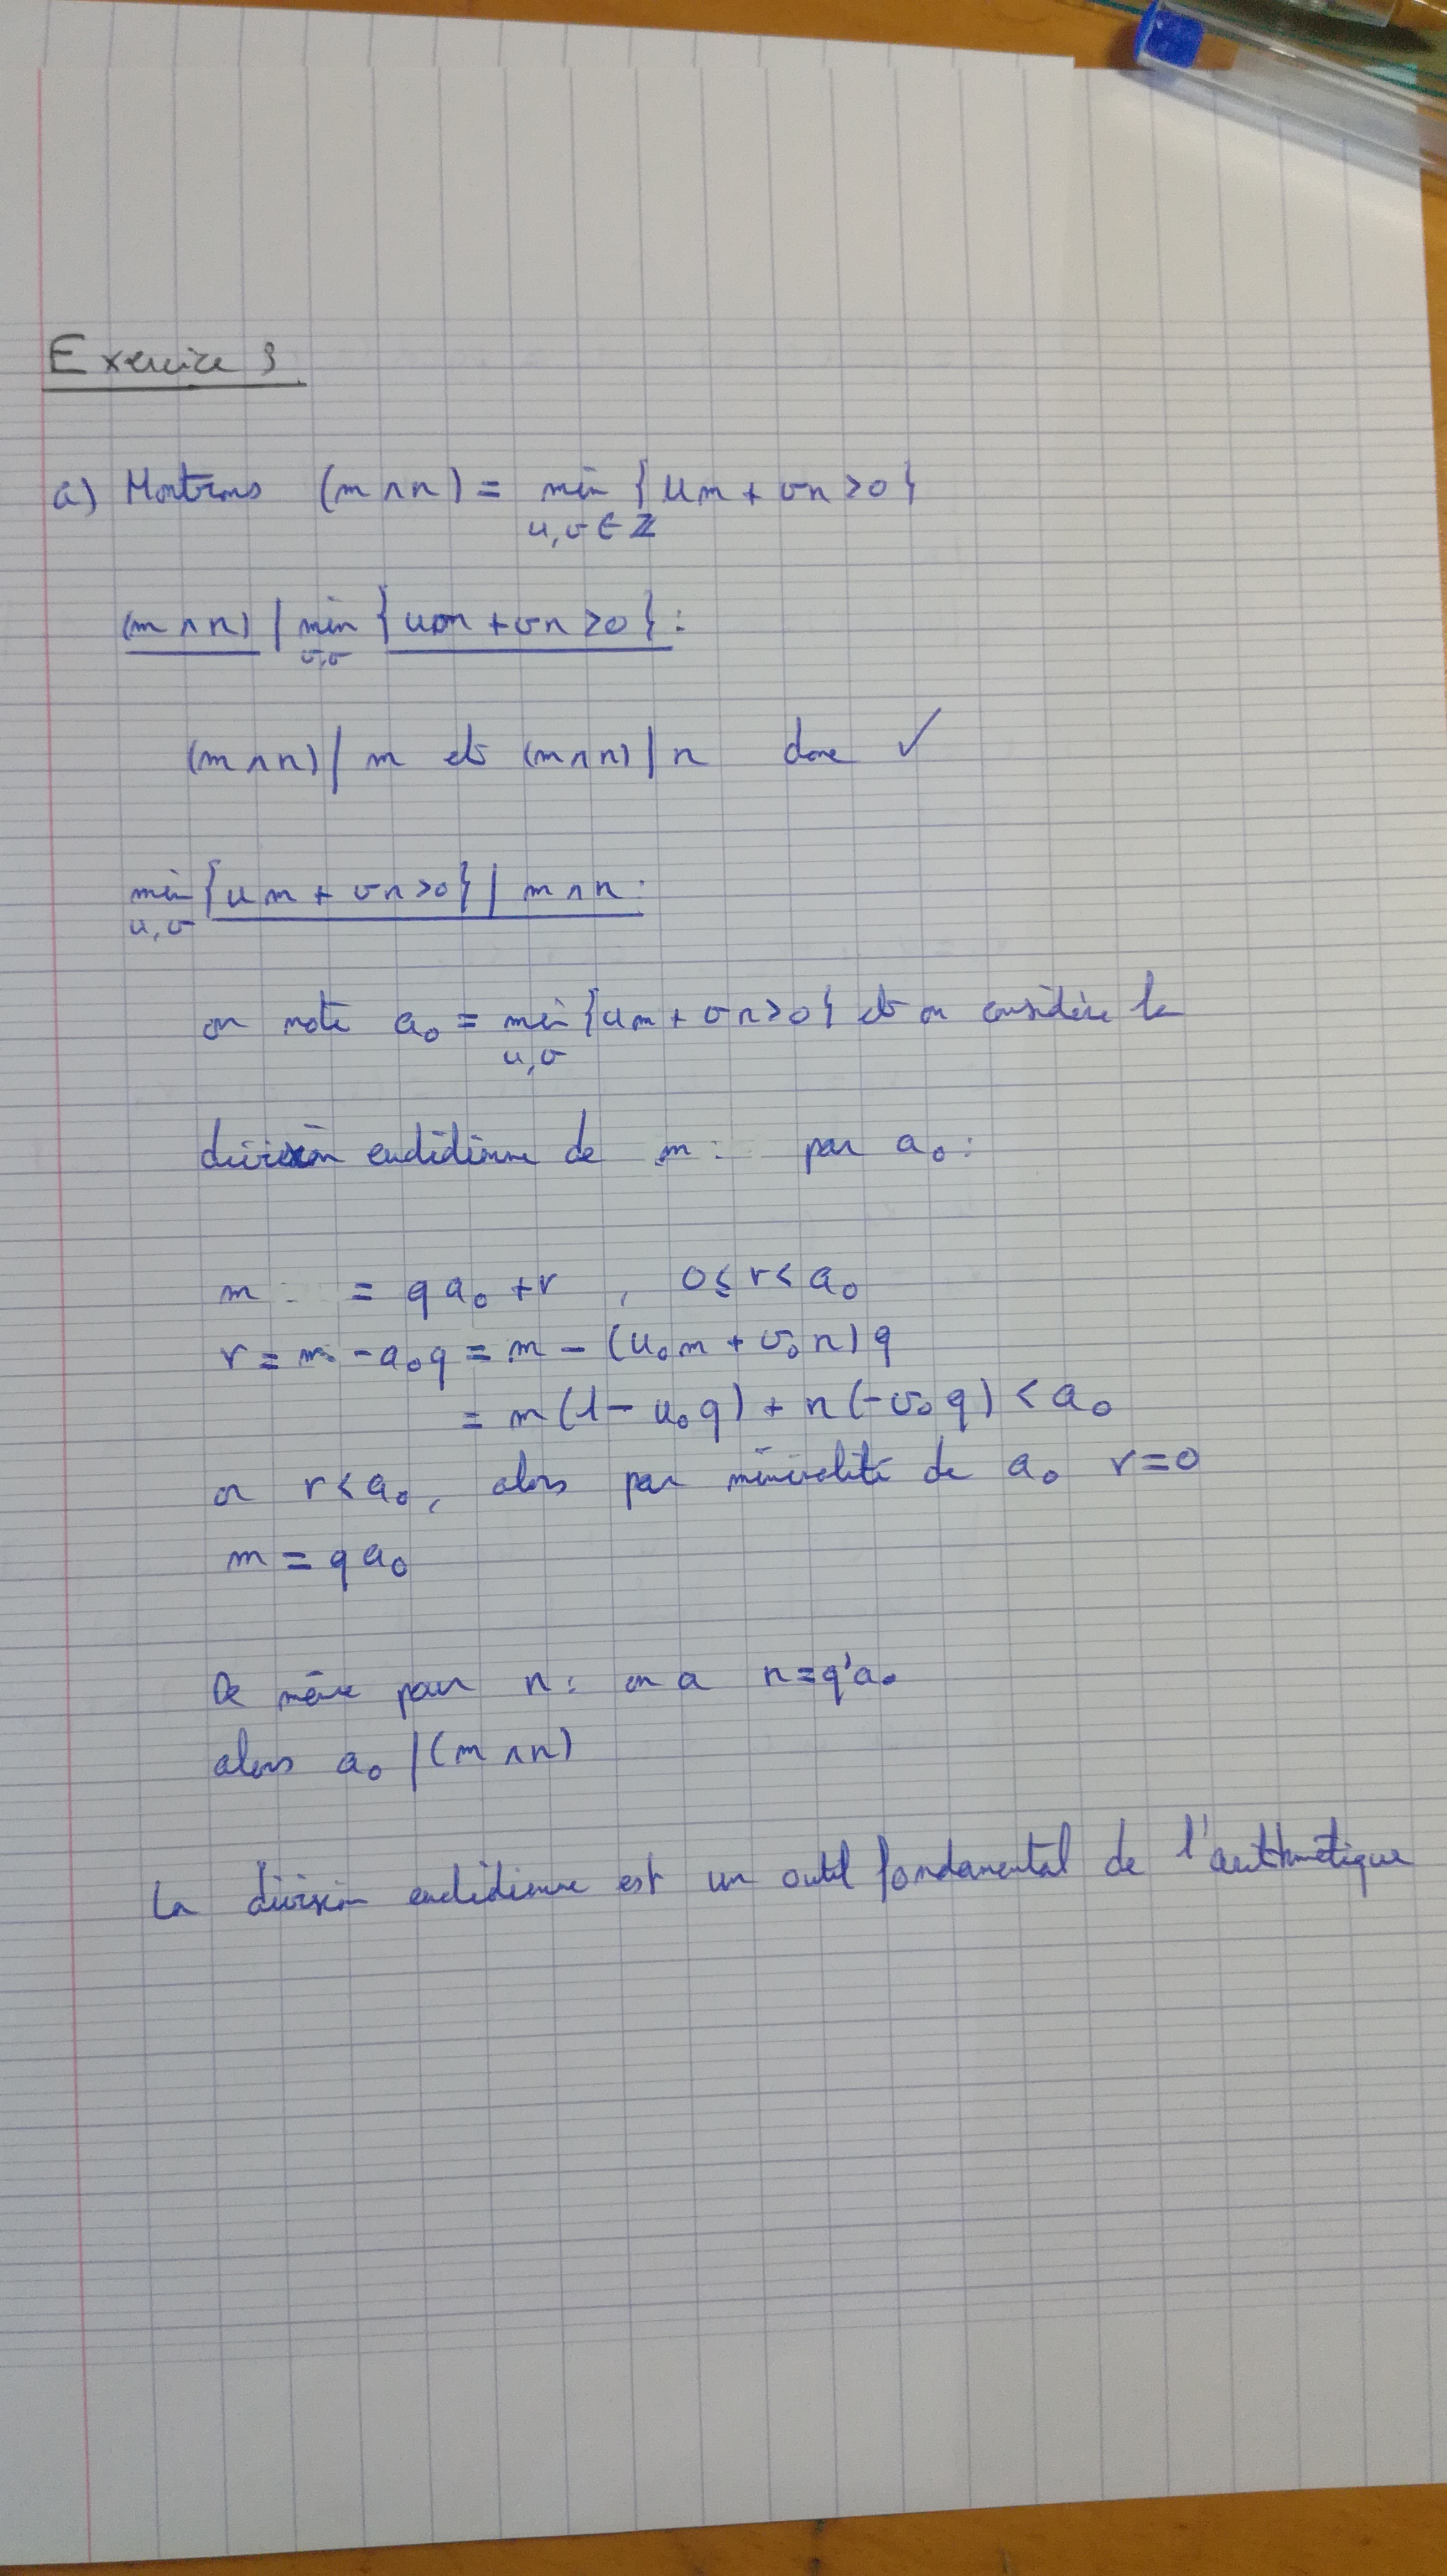 Exercice 3
a) Montrons (m ∧ n) = min {um + vn > 0}
u, v ∈ ℤ
(m ∧ n) | min {um + vn > 0} :
(m ∧ n) | m et (m ∧ n) | n donc ✓
min {um + vn > 0} | m ∧ n :
u, v
on note a₀ = min {um + vn > 0} et on considère la
u, v
division euclidienne de m par a₀ :
m = q a₀ + r , 0 ≤ r < a₀
r = m - a₀q = m - (u₀m + v₀n) q
= m(1 - u₀q) + n(-v₀q) < a₀
or r < a₀, alors par minimalité de a₀ r = 0
m = q a₀
De même pour n : on a n = q'a₀
alors a₀ | (m ∧ n)
La division euclidienne est un outil fondamental de l'arithmétique